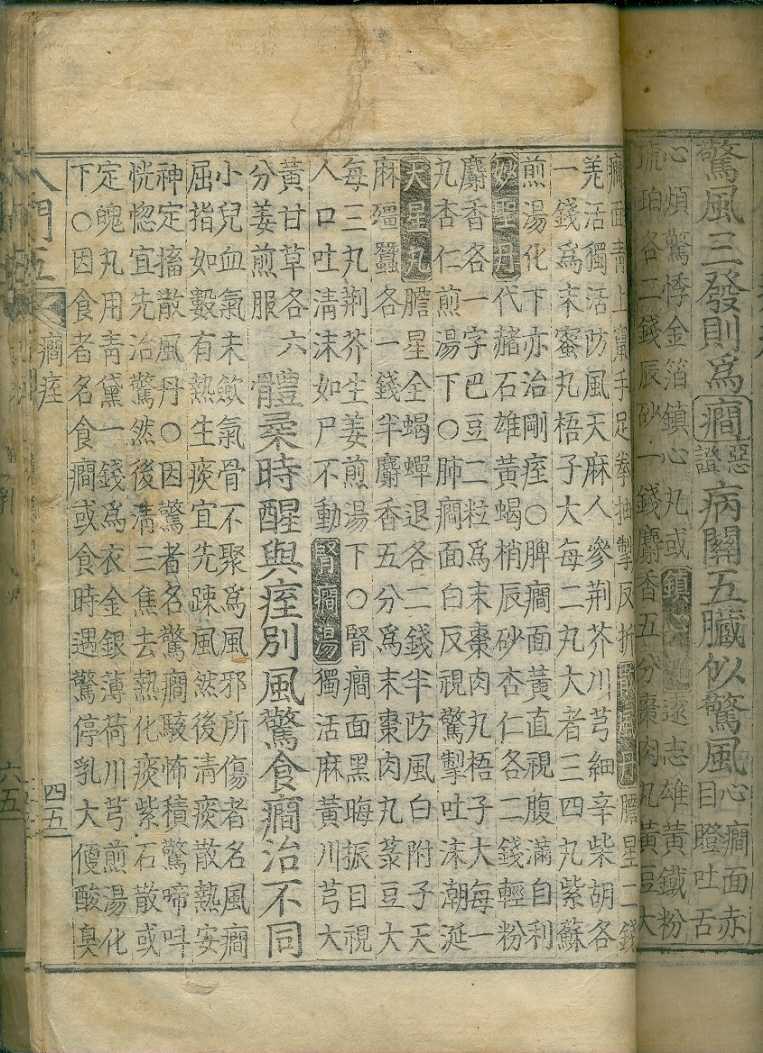 驚風三發則爲癎惡證病關五臟似驚風
心癎面赤
目瞪吐舌
心煩驚悸金箔鎮心丸或鎮心丸遠志雄黃鐵粉
琥珀各二錢辰砂一錢麝香五分棗肉丸黃豆大
癎面青上竄手足拳抽掣反折散風丹膽星二錢
羌活獨活防風天麻人參荆芥川芎細辛柴胡各
一錢爲末蜜丸梧子大每二丸大者三四丸紫蘇
煎湯化下亦治剛痓○脾癎面黃直視腹滿自利
妙聖丹代赭石雄黃蝎梢辰砂杏仁各二錢輕粉
麝香各一字巴豆二粒爲末棗肉丸梧子大每一
丸杏仁煎湯下○肺癎面白反視驚掣吐沫潮涎
天星丸膽星全蝎蟬退各二錢半防風白附子天
麻殭蠶各一錢半麝香五分爲末棗肉丸菉豆大
每三丸荆芥生姜煎湯下○腎癎面黑晦振目視
人口吐清沫如尸不動腎癎湯獨活麻黃川芎大
黃甘草各六
分姜煎服
體柔時醒與痓別風驚食癎治不同
小兒血氣未歛氣骨不聚爲風邪所傷者名風癎
屈指如數有熱生痰宜先踈風然後清痰散熱安
神定搐散風丹○因驚者名驚癎駭怖積驚啼呌
恍惚宜先治驚然後清三焦去熱化痰紫石散或
定魄丸用青黛一錢爲衣金銀薄荷川芎煎湯化
下○因食者名食癎或食時遇驚停乳大便酸臭
入門五 癎痓 四五
六五